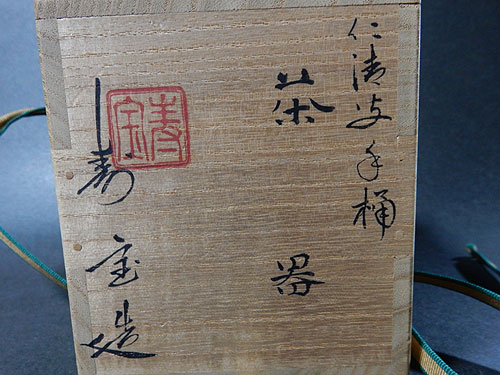 仁清写手桶
茶器
寿宝
寿宝造